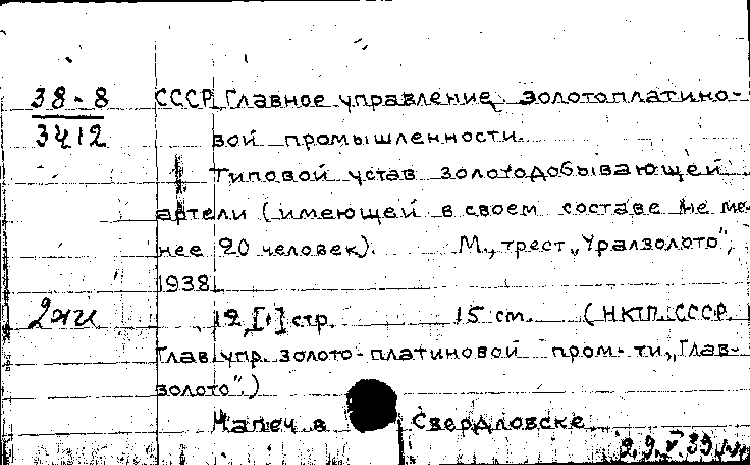 38-8
3412
СССР. Главное управление золотоплатино-
вой промышленности.
Типовой устав золотодобывающей
артели (имеющей в своем составе не ме-
нее 20 человек). М., трест „Уралзолото",
1938.
2жи
12, [1] стр. 15 ст. (НКТП. СССР.
Глав. упр. золото-платиновой пром-ти „Глав-
золото".)
Напеч. в Свердловске.